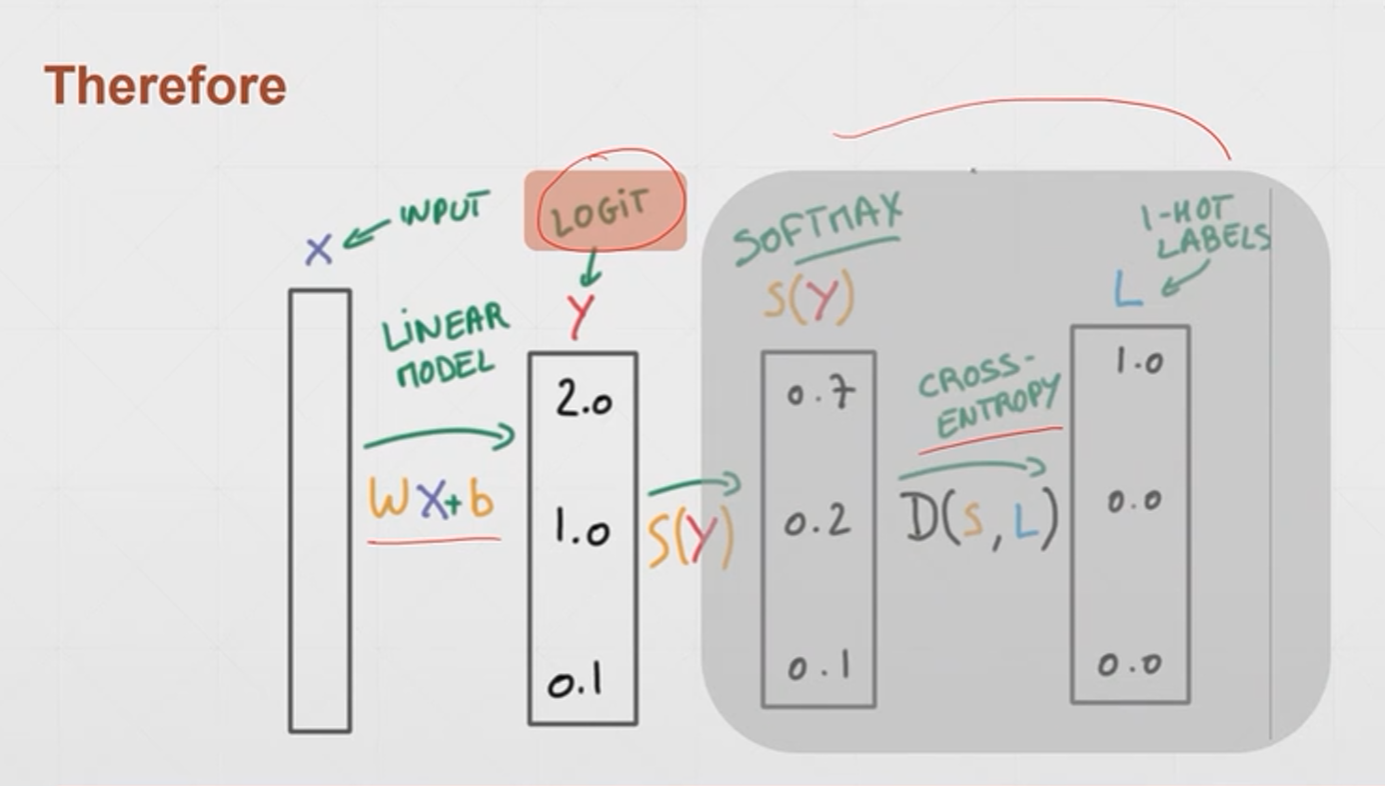 Therefore
X
INPUT
LINEAR
MODEL
WX+b
LOGIT
Y
2.0
1.0
0.1
S(Y)
SOFTMAX
S(Y)
0.7
0.2
0.1
CROSS-
ENTROPY
D(S,L)
1-HOT
LABELS
L
1.0
0.0
0.0